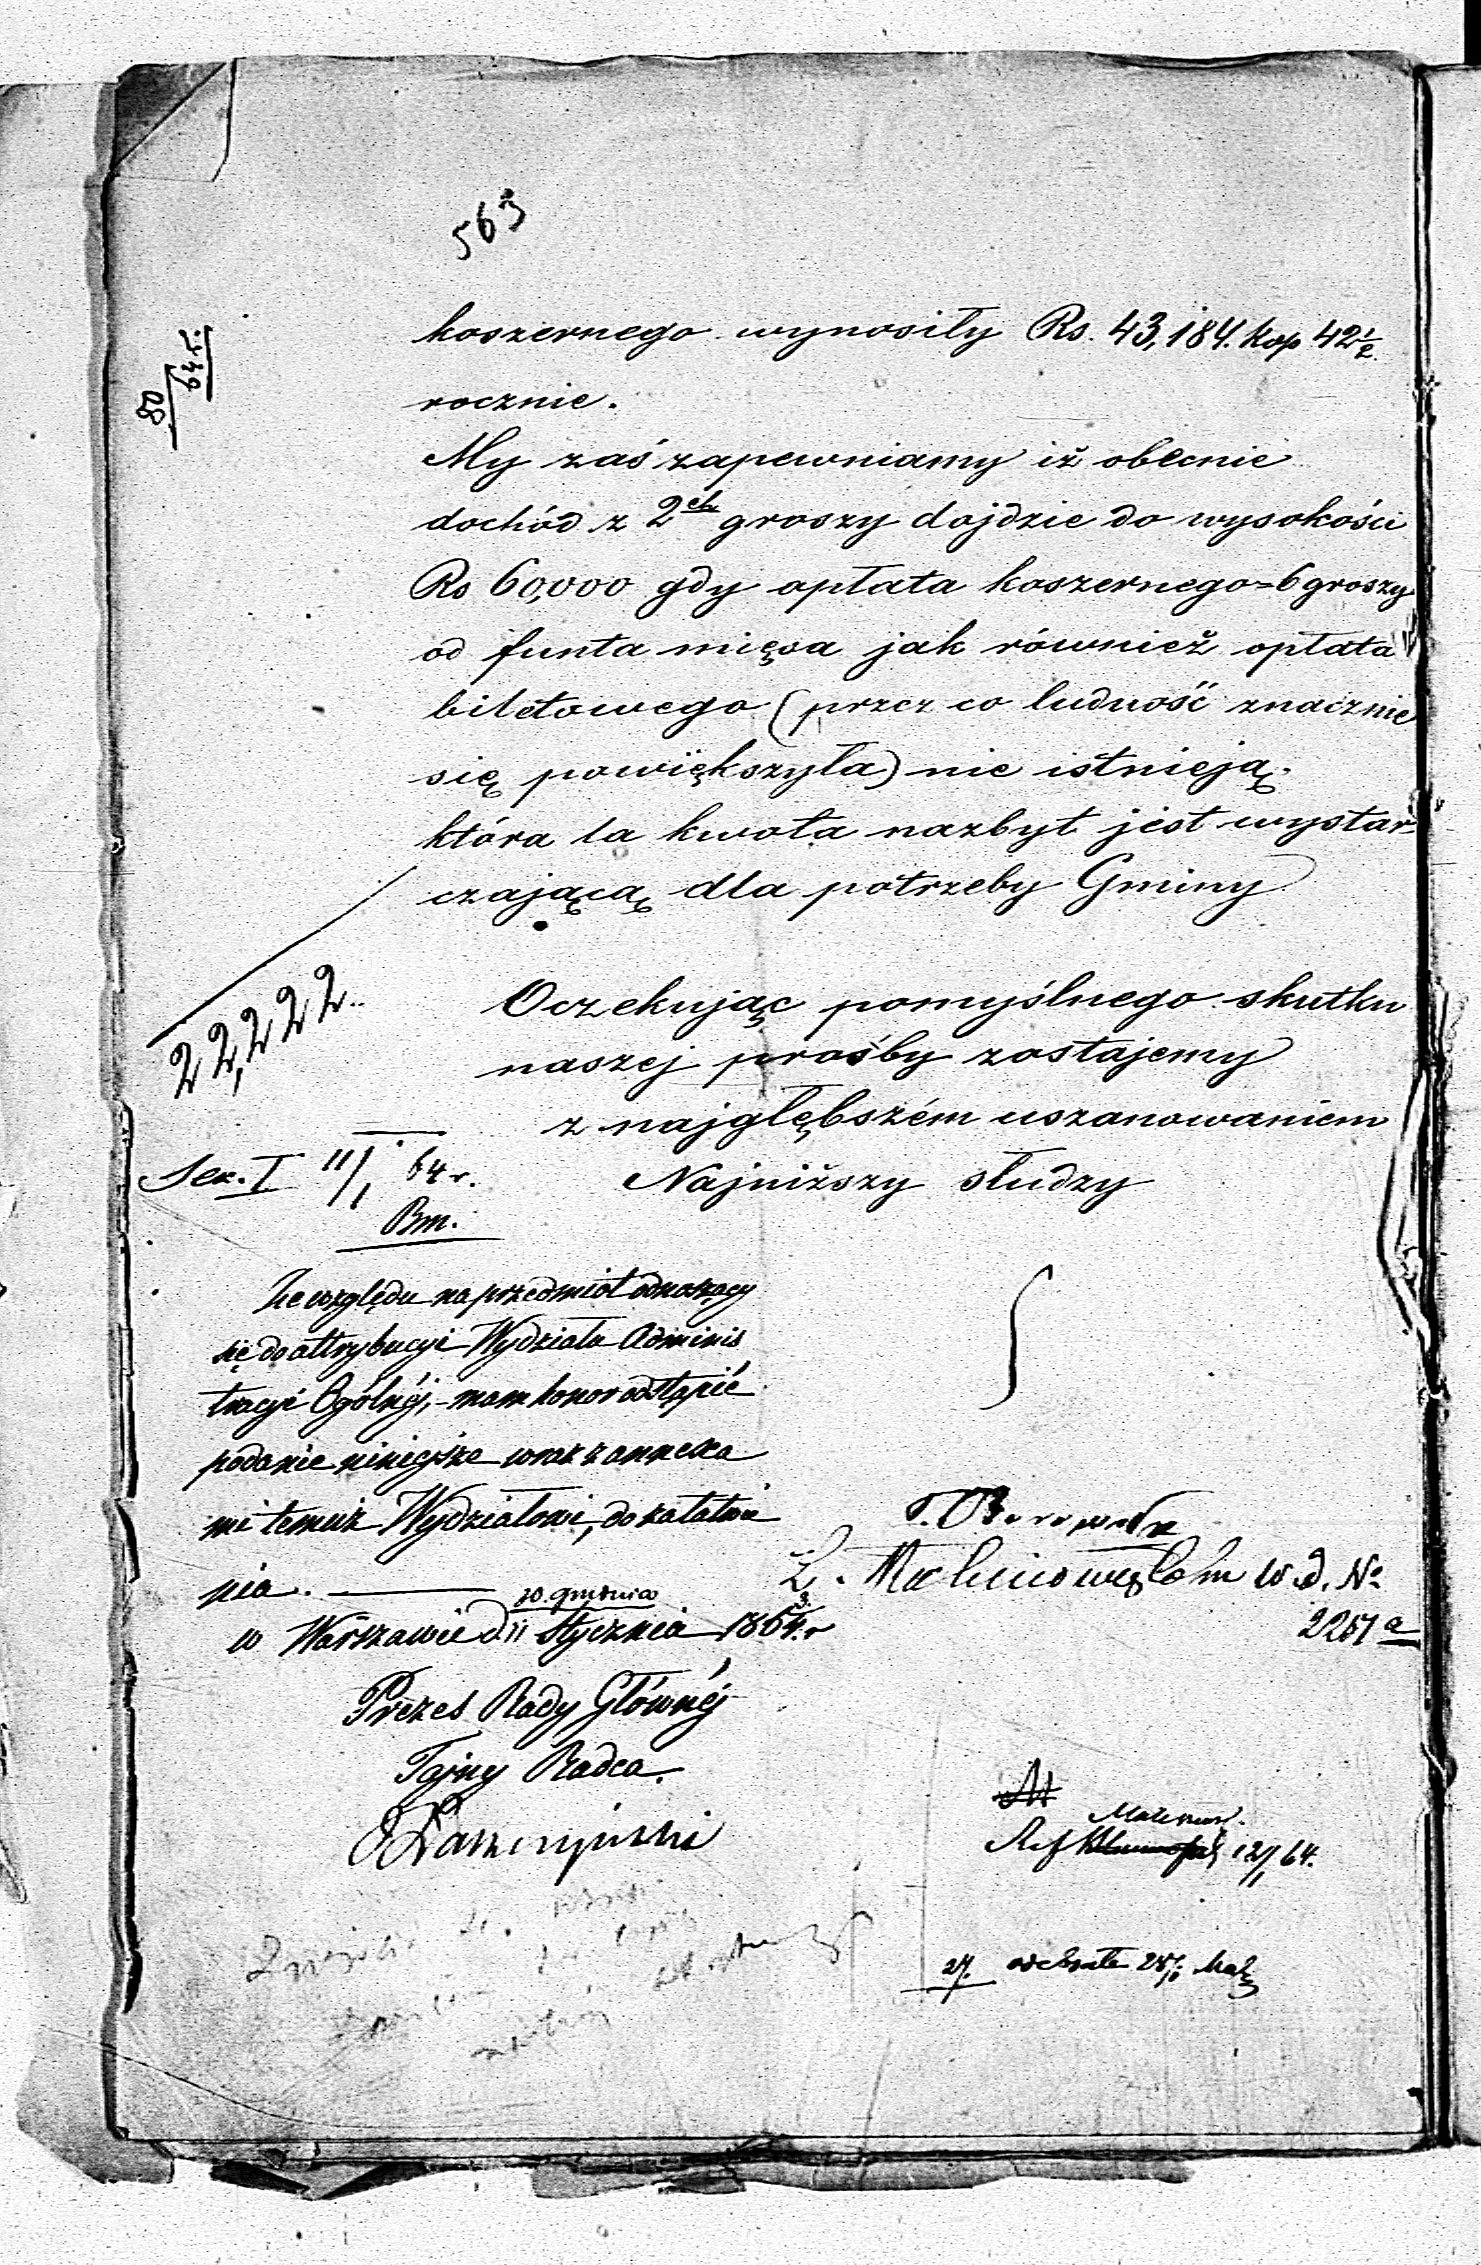 563
80
64 r.
koszernego wynosiły Rs. 43,184. kop 42½
rocznie.
My zaś zapewniamy iż obecnie
dochód z 2ch groszy dojdzie do wysokości
Rs 60,000 gdy opłata koszernego=6 groszy
od funta mięsa jak również opłata
biletowego (przez co ludność znacznie
się powiększyła) nie istnieją.
która ta kwota nazbyt jest wystar
czającą dla potrzeby Gminy
22,222
Oczekując pomyślnego skutku
naszej prośby zostajemy
z najgłębszém uszanowaniem
Najniższy słudzy
Sek. I 11/1 64 r.
Bm.
Ze względu na przedmiot odnoszący
się do attrybucyi Wydziału Adminis
tracyi Ogólnéj, - mam honor odstąpić
podanie niniejsze wraz z annexa
mi temuż Wydziałowi, do załatwie
nia.
30 grudnia
w Warszawie d 11 Stycznia 1864 r
w d. No
2251 a
Prezes Rady Głównéj
Tajny Radca.
Ref 12/1 64.
27. odebrałe